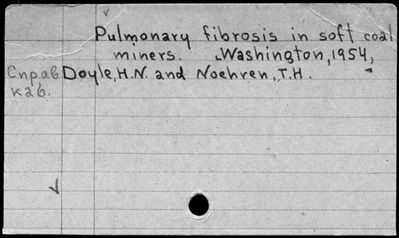 Pulmonary fibrosis in soft coal
miners. Washington, 1954,
Справ Doyle, H.N. and Noehren, T.H.
каб.